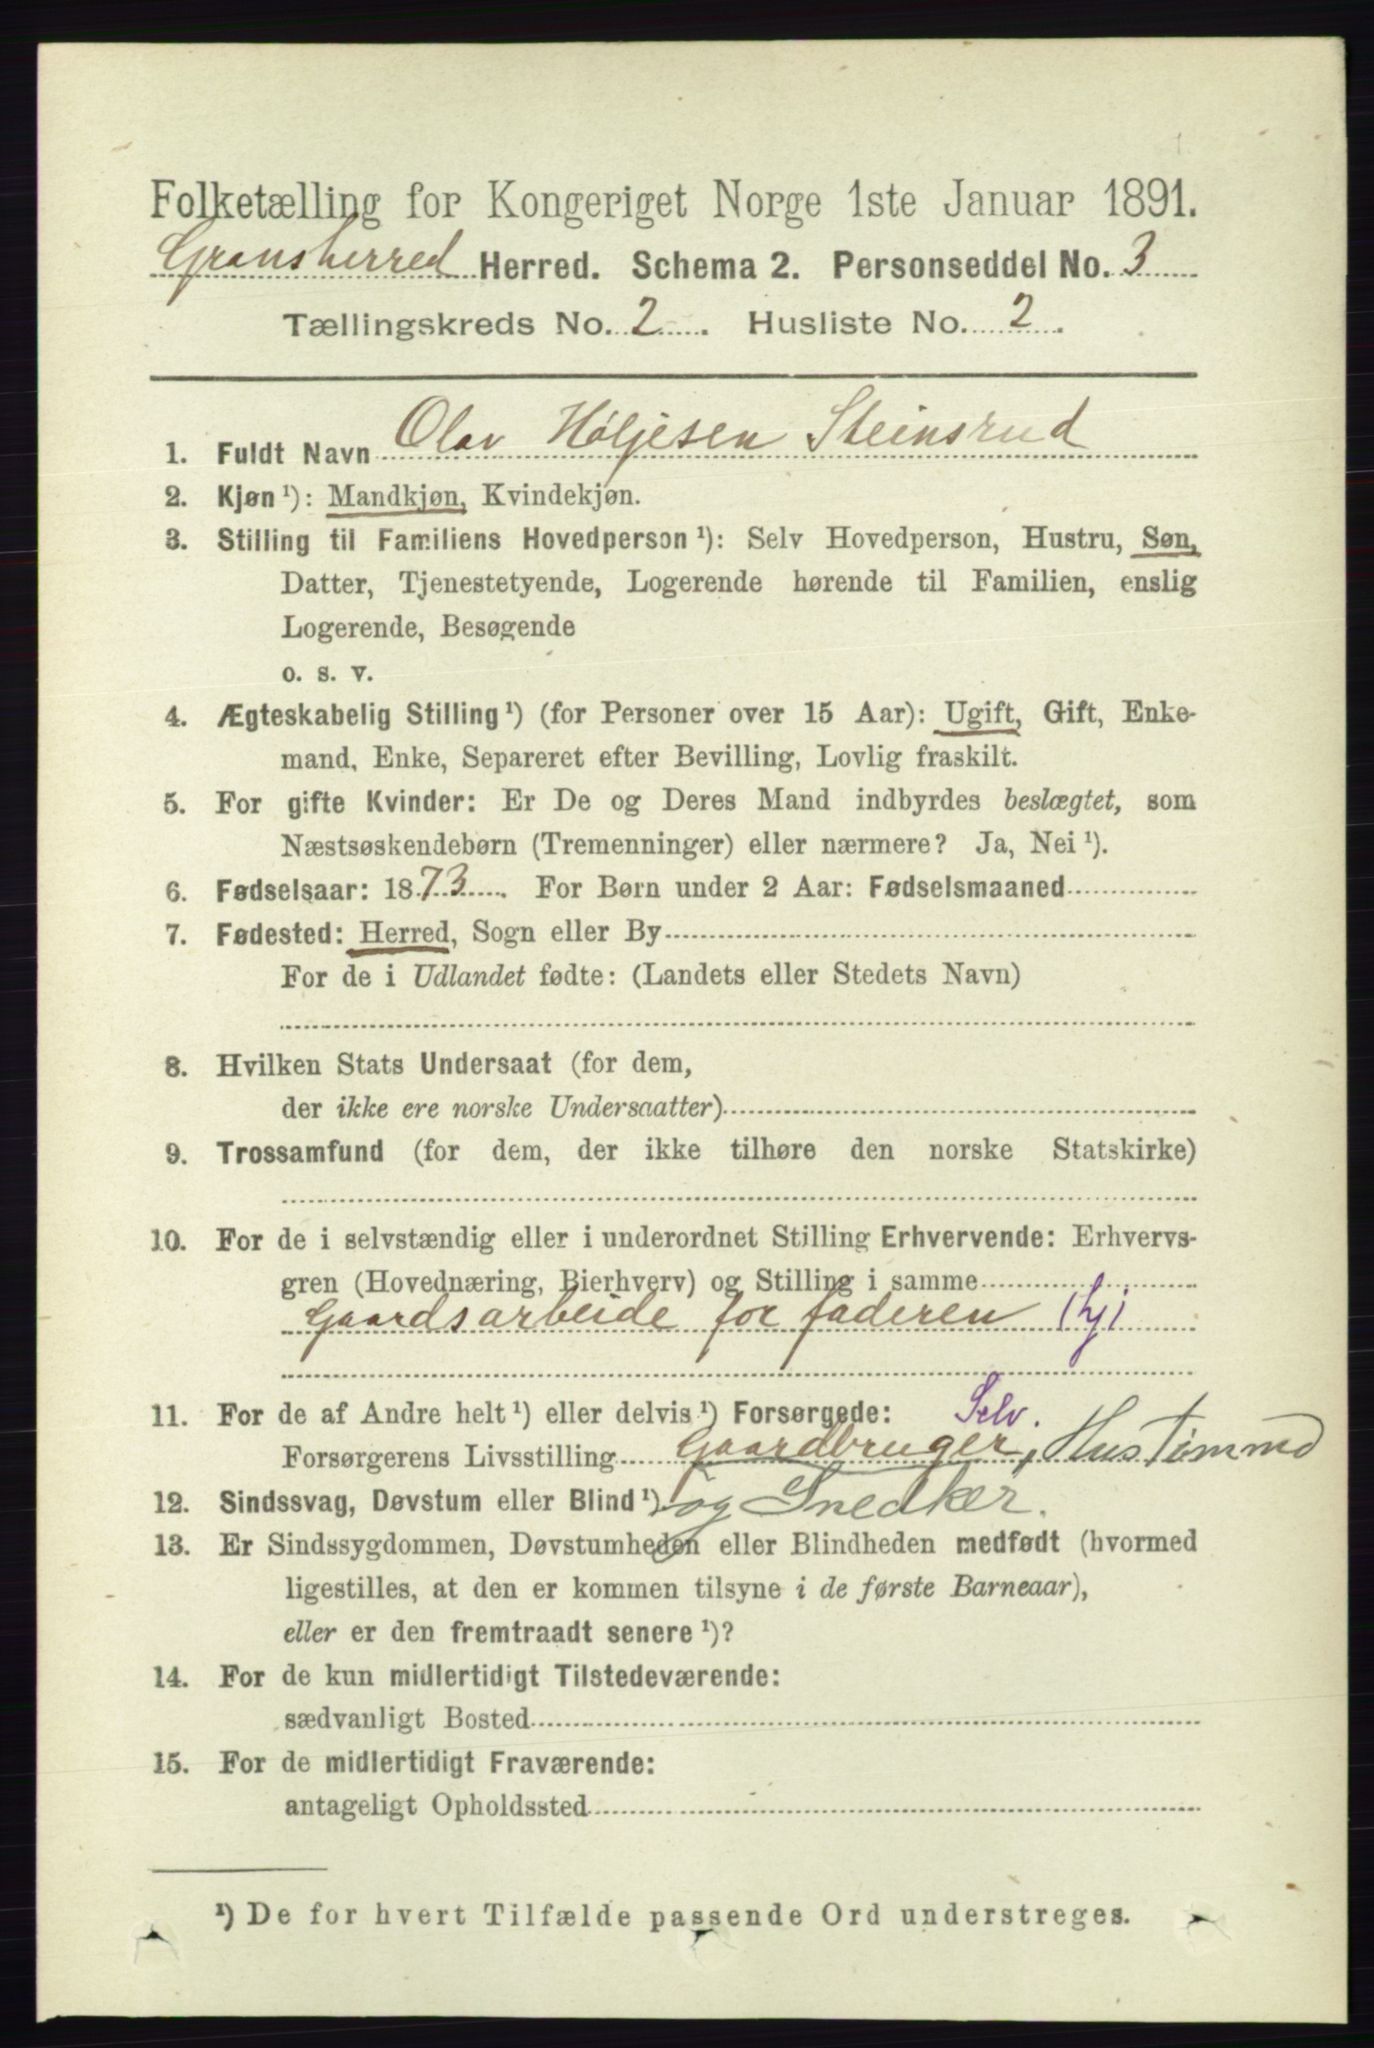 Folketælling for Kongeriget Norge 1ste Januar 1891.
Gransherred Herred. Schema 2. Personseddel No. 3
Tællingskreds No. 2. Husliste No. 2.
1. Fuldt Navn Olav Høljesen Steinsrud
2. Kjøn ¹): Mandkjøn, Kvindekjøn.
3. Stilling til Familiens Hovedperson ¹): Selv Hovedperson, Hustru, Søn,
Datter, Tjenestetyende, Logerende hørende til Familien, enslig
Logerende, Besøgende
o. s. v.
4. Ægteskabelig Stilling ¹) (for Personer over 15 Aar): Ugift, Gift, Enke-
mand, Enke, Separeret efter Bevilling, Lovlig fraskilt.
5. For gifte Kvinder: Er De og Deres Mand indbyrdes beslægtet, som
Næstsøskendebørn (Tremenninger) eller nærmere? Ja, Nei ¹).
6. Fødselsaar: 1873. For Børn under 2 Aar: Fødselsmaaned
7. Fødested: Herred, Sogn eller By
For de i Udlandet fødte: (Landets eller Stedets Navn)
8. Hvilken Stats Undersaat (for dem,
der ikke ere norske Undersaatter)
9. Trossamfund (for dem, der ikke tilhøre den norske Statskirke)
10. For de i selvstændig eller i underordnet Stilling Erhvervende: Erhvervs-
gren (Hovednæring, Bierhverv) og Stilling i samme
Gaardsarbeide for faderen
11. For de af Andre helt ¹) eller delvis ¹) Forsørgede: Selv.
Forsørgerens Livsstilling Gaardbruger, Hustømmd
12. Sindssvag, Døvstum eller Blind ¹). og Snedker.
13. Er Sindssygdommen, Døvstumheden eller Blindheden medfødt (hvormed
ligestilles, at den er kommen tilsyne i de første Barneaar),
eller er den fremtraadt senere ¹)?
14. For de kun midlertidigt Tilstedeværende:
sædvanligt Bosted
15. For de midlertidigt Fraværende:
antageligt Opholdssted
¹) De for hvert Tilfælde passende Ord understreges.